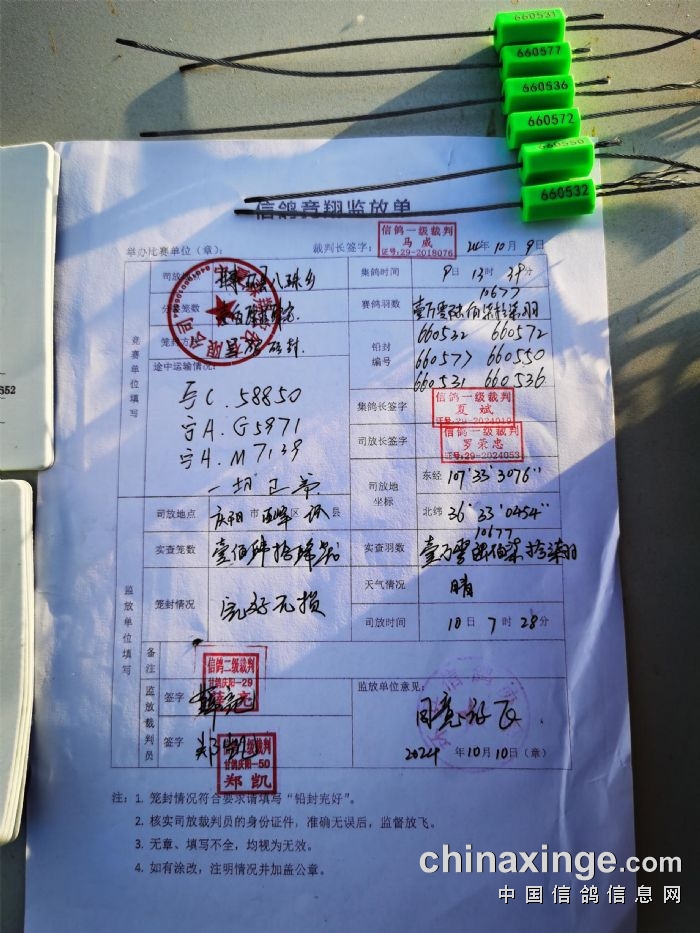 660531
660577
660536
660572
660550
660532
信鸽竞翔监放单
举办比赛单位（章）：
裁判长签字：
信鸽一级裁判
马威
证号:29-2018076
2024年10月9日
司放地点
八珠乡
集鸽时间
9日13时39分
笼数
赛鸽羽数
10677
竞赛单位填写
铅封编号
660532 660572
660577 660550
660531 660536
途中运输情况：
宁C.58850
宁A.G5971
宁A.M7139
一切正常
集鸽长签字
信鸽一级裁判
夏斌
司放长签字
信鸽一级裁判
罗荣忠
证号:29-2024053
司放地坐标
东经 107°33′3076″
北纬 36°33′0454″
监放单位填写
司放地点
庆阳市 区 县
实查笼数
实查羽数
10677
笼封情况
完好无损
天气情况
晴
司放时间
10日7时28分
备注
监放裁判员
签字
信鸽二级裁判
甘鸽庆阳-29
签字
甘鸽庆阳-50
郑凯
监放单位意见：
同意放飞.
2024年10月10日（章）
注：1. 笼封情况符合要求请填写“铅封完好”。
2. 核实司放裁判员的身份证件，准确无误后，监督放飞。
3. 无章、填写不全，均视为无效。
4. 如有涂改，注明情况并加盖公章。
652
chinaxinge.com
中国信鸽信息网